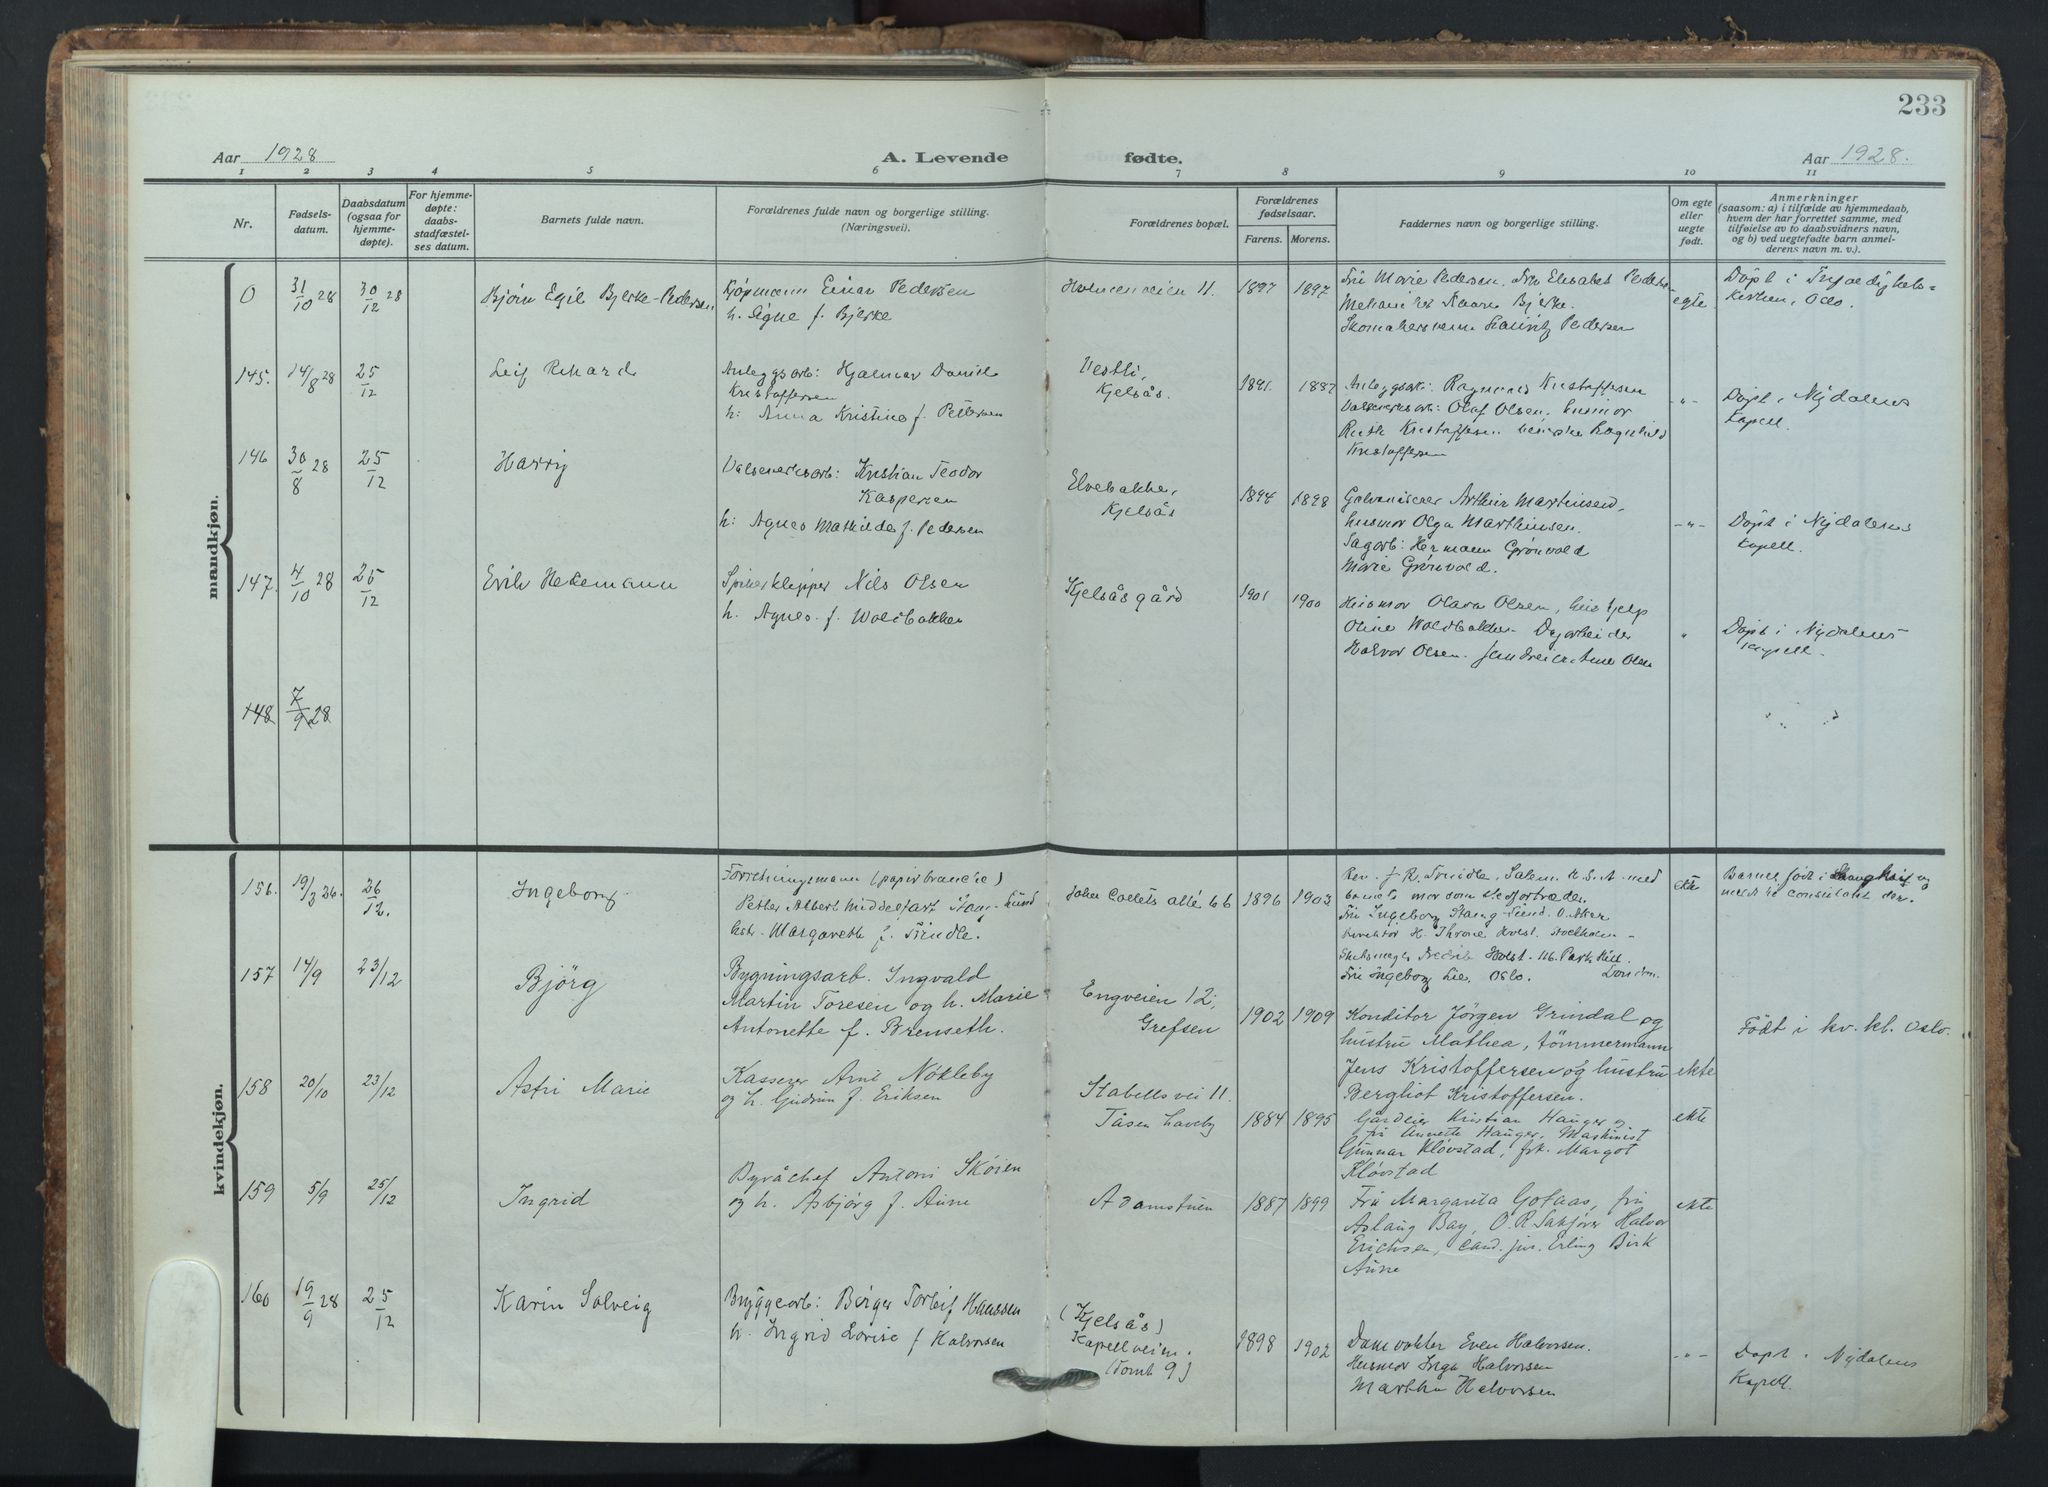 233
Aar 1928
A. Levende fødte.
Aar 1928.
1 2 3 4 5 6 7 8 9 10 11
Nr.
Fødsels-
datum.
Daabsdatum
(ogsaa for
hjemme-
døpte).
For hjemme-
døpte:
daabs-
stadfæstel-
ses datum.
Barnets fulde navn.
Forældrenes fulde navn og borgerlige stilling.
(Næringsvei).
Forældrenes bopæl.
Forældrenes
fødselsaar.
Farens. Morens.
Faddernes navn og borgerlige stilling.
Om egte
eller
uegte
født.
Anmerkninger
(saasom: a) i tilfælde av hjemmedaab,
hvem der har forrettet samme, med
tilføielse av to daabsvidners navn,
og b) ved uegtefødte barn anmel-
derens navn m. v.).
mandkjøn.
0
31/10 28
30/12 28
Bjørn Egil Bjerke-Pedersen
Kjøpmann Einar Pedersen
h. Signe f. Bjerke
Holmenveien 11.
1897
1897
Fru Marie Pedersen, Frk Elisabet Pedersen
Kaare Bjerke.
Lauritz Pedersen
egte
Døpt i
kirken, Oslo.
145.
14/8 28
25/12
Leif Rikard
Anleggsarb: Hjalmar Daniel
Kristoffersen
h: Anna Kristine f. Pettersen
Vestli,
Kjelsås.
1891.
1887
Anleggsarb: Kristoffersen
Valseverksarb: Olaf Olsen, husmor
Ruth Kristoffersen Ragnhild
Kristoffersen
-"-
Døpt i Nydalens
Kapell.
146
30/8 28
25/12
Harry
Valseverksarb: Kristian Teodor
Kaspersen
h: Agnes Mathilde f. Pedersen
Elvebakke,
Kjelsås
1894
1898
Galvaniserer Arthur Martinsen,
husmor Olga Marthinsen.
Sagarb: Hermann Grønvold
Marie Grønvold.
-"-
Døpt i Nydalens
Kapell.
147.
4/10 28
25/12
Erik Hekemann
Spikerklipper Nils Olsen
h. Agnes f. Woldbakken
Kjelsås gård
1901
1900
Husmor Olava Olsen, hushjelp
Oline Woldbakken. Dagarbeider
Halvor Olsen. Olsen
"
Døpt i Nydalens
Kapell.
148
7/9 28
kvindekjøn.
156.
19/3 26.
26/12.
Ingeborg
Forretningsmann (papirbranche)
Petter Albert Middelfart Stang-Lund
hstr. Margareth f. Trindle.
Johan Colletts allé 66
1896
1903
Rev. f. R. Trindle, Salem U.S.A. med
barnets mor som stedfortræder.
Fru Ingeborg Stang-Lund. V. Aker
Direktør H. Throne Holst. Stockholm -
Fredrik Holst. 116. Park Hill.
Fru Ingeborg Lie, Oslo. London.
ekte
Barnet født i Shanghai og
meldt til consulatet der.
157
14/9
23/12
Bjørg
Bygningsarb. Ingvald
Martin Toresen og h. Marie
Antonette f. Brenseth.
Engveien 12,
Grefsen
1902
1909
Konditor Jørgen Grindal og
hustru Mathea, tømmermann
Jens Kristoffersen og hustru
Bergliot Kristoffersen.
ekte
Født i kv. kl. Oslo.
158
20/10
23/12
Astri Marie
Kasserer Arne Nökleby
og h. Gudrun f. Eriksen
Stabellsvei 11.
Tåsen haveby
1884
1895
Gårdeier Kristian Hauger og
fru Annette Hauger, Maskinist
Gunnar Kløvstad, frk. Margot
Kløvstad
ekte
159
5/9
25/12
Ingrid
Byråchef Antoni Skøien
og h. Asbjörg f. Aune
Adamstuen
1887
1899
Fru Margareta Gofaas, fru
Aslaug Bay, O.R.Sakfører Halvor
Erichsen, cand. jur. Erling Birk
Aune
ekte
160
19/9 28
25/12
Karin Solveig
Bryggearb: Birger Torleif Hanssen
h. Ingrid Lovise f Halvorsen
(Kjelsås)
Kapellveien.
(Tomt 9)
1898
1902
Damvokter Even Halvorsen.
Husmor Inga Halvorsen
Martha Halvorsen
-"-
Døpt i Nydalens
Kapell.